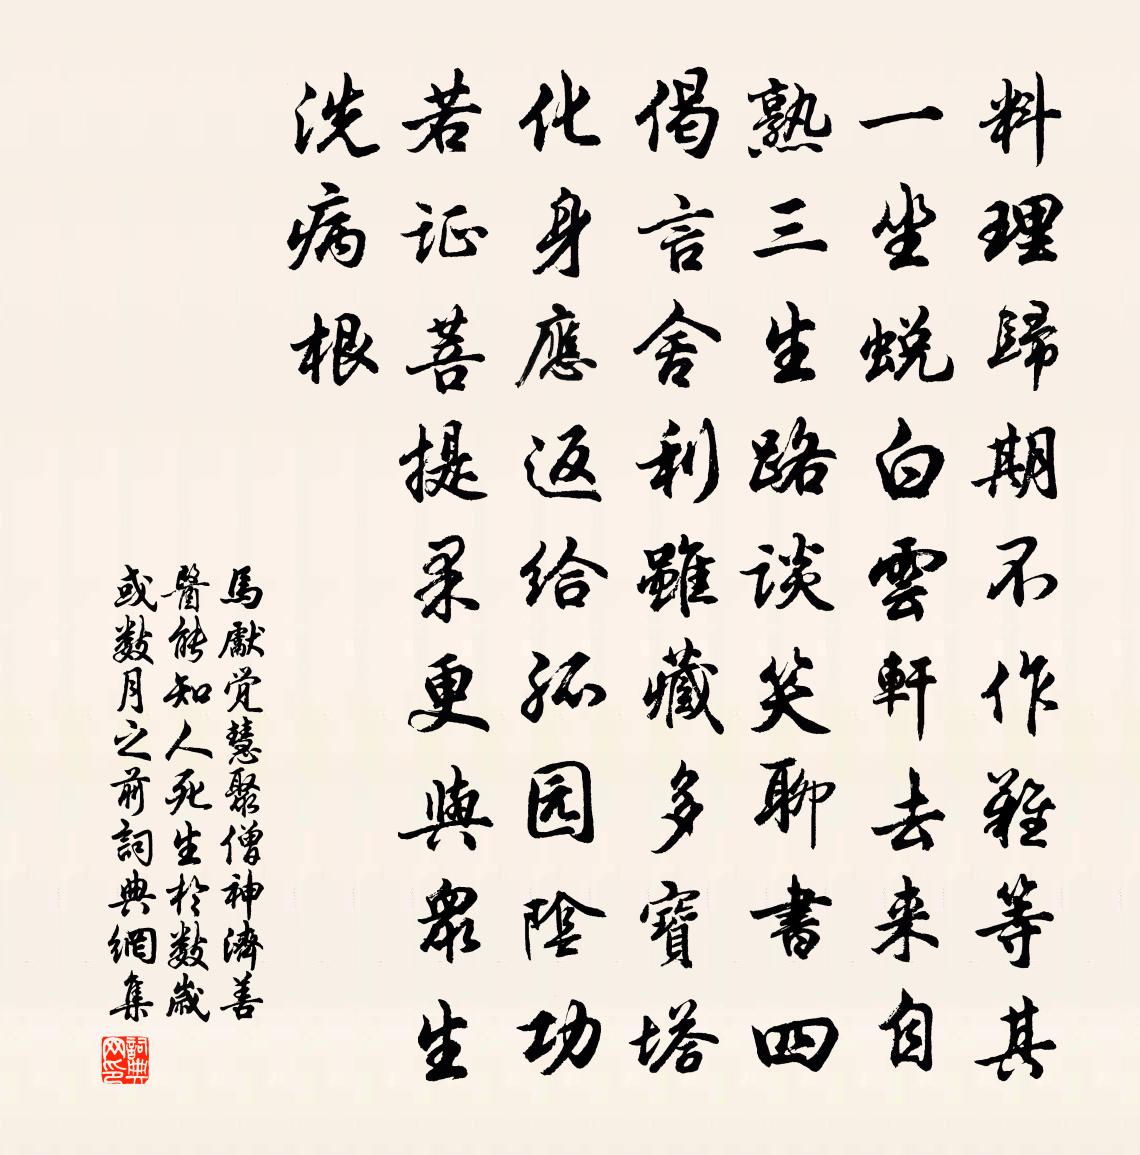 料理歸期不作難等其
一坐蜕白雲軒去来自
熟三生路談笑聊書四
偈言舍利雖藏多寶塔
化身應返给孤园陰功
若证菩提果更與眾生
洗病根
馬獻觉慧聚僧神濟善
醫能知人死生於数歲
或数月之前詞典網集
詞典网印